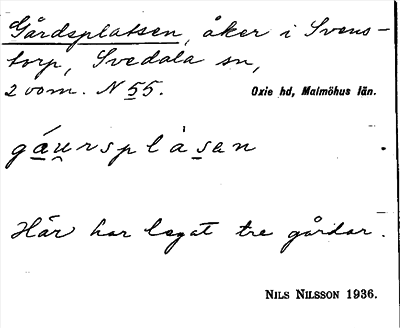 Gårdsplatsen, åker i Svens-
torp, Svedala sn,
2 vom. N 55. Oxie hd, Malmöhus län.
gáu̯rsplàsen
Här har legat tre gårdar.
NILS NILSSON 1936.